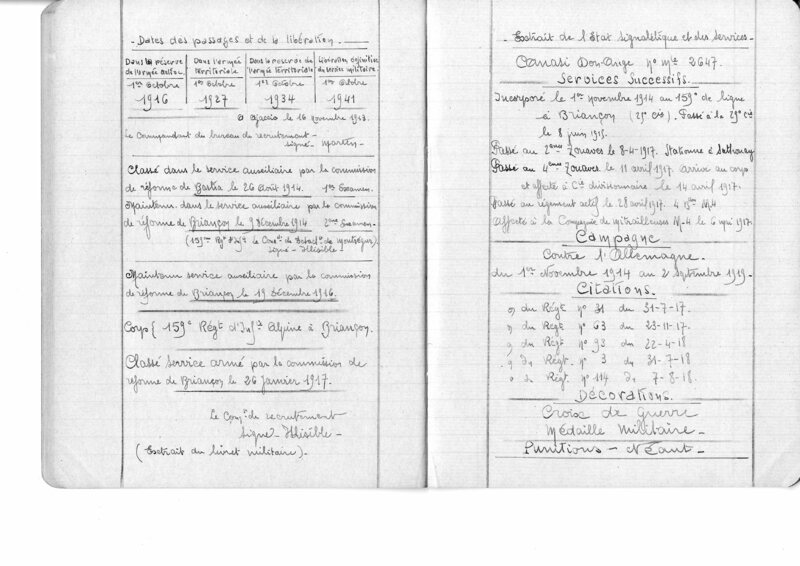 - Dates des passages et de la libération -
Dans la réserve de l'armée active. | Dans l'armée territoriale | Dans la réserve de l'armée territoriale | Libération définitive du service militaire.
1er Octobre 1916 | 1er Octobre 1927 | 1er Octobre 1934 | 1er Octobre 1941
à Ajaccio le 16 novembre 1913.
Le Commandant du bureau de recrutement -
signé - Martin
Classé dans le service auxiliaire par la commission
de réforme de Bastia le 26 Août 1914. 1er Examen.
Maintenu dans le service auxiliaire par la commission
de réforme de Briançon le 9 Décembre 1914 2ème Examen -
signé - Illisible -
Maintenu service auxiliaire par la commission
de réforme de Briançon le 19 Décembre 1916.
Corps { 159e Régt d'Infie Alpine à Briançon.
Classé service armé par la commission de
réforme de Briançon le 26 Janvier 1917.
Le Comt de recrutement
signé - Illisible -
( Extrait du livret militaire ).
- Extrait de l'Etat Signalétique et des Services -
Canasi Don-Ange no mle 2647.
Services Successifs.
Incorporé le 1er novembre 1914 au 159e de ligne
à Briançon (25e cie). Passé à la 29e cie
le 8 juin 1915.
Passé au 2ème Zouaves le 8-4-1917. Stationné à Sathonay
Passé au 4ème Zouaves le 11 avril 1917. Arrivé au corps
et affecté à Cie divisionnaire le 14 avril 1917.
Passé au régiment actif le 28 avril 1917. 4e Bon M4
Affecté à la Compagnie de mitrailleuses M-4 le 6 mai 1917.
Campagne
Contre l'Allemagne.
du 1er Novembre 1914 au 2 Septembre 1919.
Citations.
du Régt no 31 du 31-7-17.
du Régt no 63 du 23-11-17.
du Régt no 93 du 22-4-18
du Régt. no 3 du 31-7-18
Régt. no 114 du 7-8-18.
Décorations.
Croix de Guerre
Médaille Militaire -
Punitions - Néant -